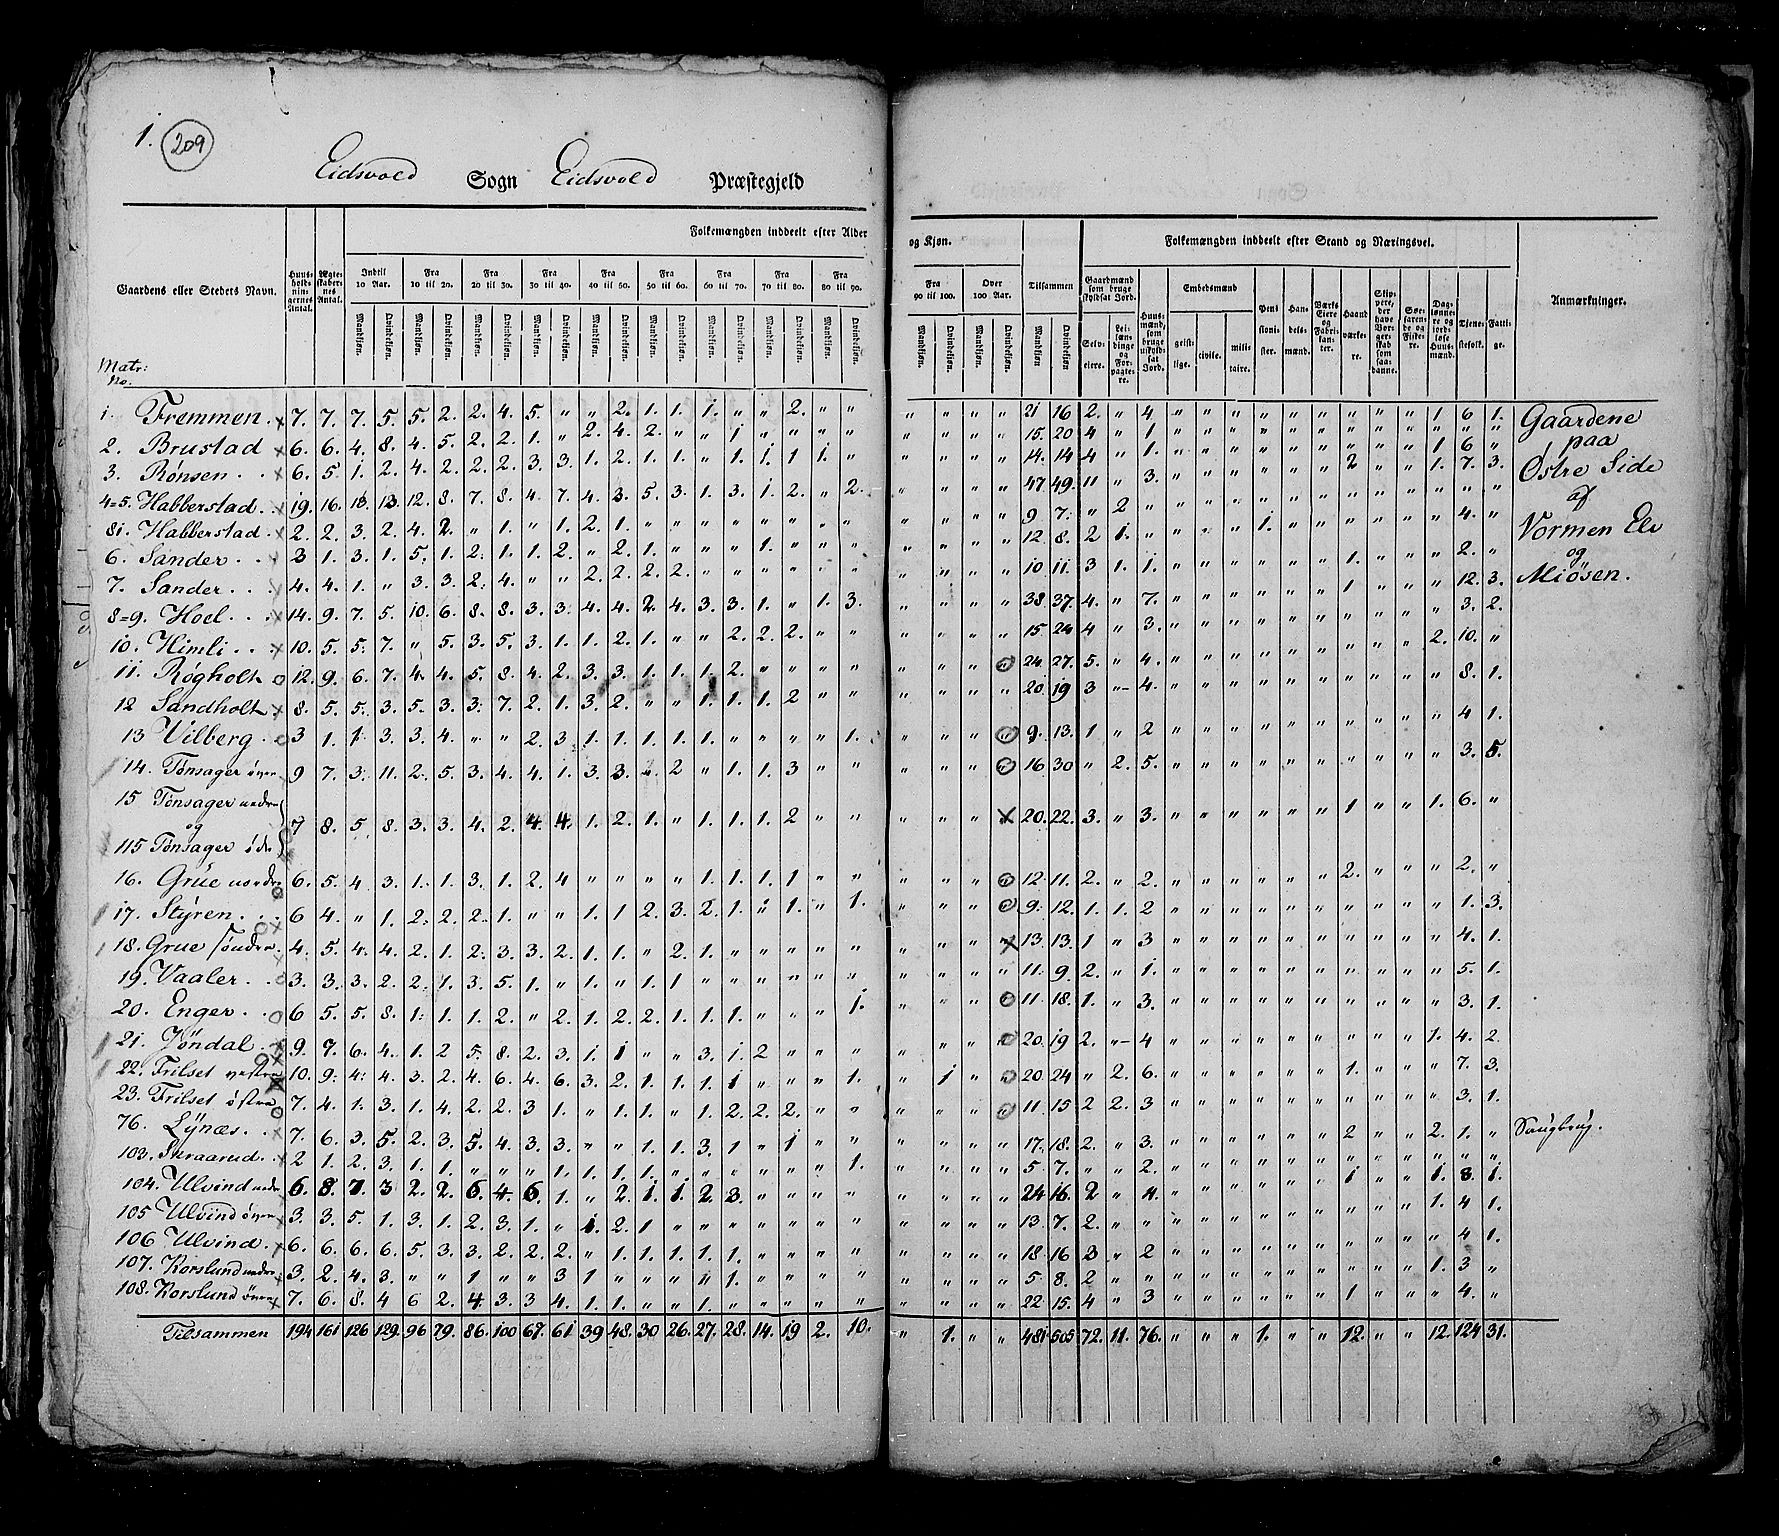 1. 209
Eidsvold Sogn Eidsvold Præstegjeld
Folkemængden inddeelt efter Alder og Kjøn. Folkemængden inddeelt efter Stand og Næringsvei.
Gaardens eller Stedets Navn. Huusholdningernes Antal. Ægteskabernes Antal. Indtil 10 Aar. Fra 10 til 20. Fra 20 til 30. Fra 30 til 40. Fra 40 til 50. Fra 50 til 60. Fra 60 til 70. Fra 70 til 80. Fra 80 til 90. Fra 90 til 100. Over 100 Aar. Tilsammen Gaardmænd som bruge skyldsat Jord. Huusmænd, som bruge uskyldsat Jord. Embedsmænd Pensionister. Handelsmænd. Værks Eiere og Fabrikanter. Haandværkere. Skippere, der have Borgerskab som saadanne. Søefarende og Fiskere. Daglønnere og jordløse Huusmænd. Tjenestefolk. Fattige. Anmærkninger.
Mandkjøn. Qvindekjøn. Selveiere. Leilændinge og Forpagtere. geistlige. civile. militaire.
Matr: No.
1. Fremmen. x 7. 7. 7. 5. 5. 2. 2. 4. 5. " " 2. 1. 1. 1. " " 2. " " " " " " 21 16 2. " 4 " " " " " " " " " 1 6 1. Gaardene
2. Brustad x 6. 6. 4. 8. 4. 5. 2. 2. 1. " 2. 4. 2. " " 1 " " " " " " " " 15. 20 4 " 1 " " " " " " " " " " " " paa
3. Rønsen . . x 6. 5 1. 2. 4. 2. 2. 2. 3. 3. 1. 2. 1. " " 1. 1. 1 1. " " " " " 14. 14 4 " 1. " " " " " " " " " 1 6 " Østre Side
4=5. Habberstad . x 19. 16. 18. 13. 12. 8. 7. 8. 4. 7. 4. 3. 5. 3. 1. 3. 1. 2. " 2. " " " " 47 49. 11 " 3. " " " " " " 2 " " 1. 7. 3. af
81. Habberstad . x 2. 2. 3. 2. 4. 2. " 1. " 1. 2. 1. " " " " " " " " " " " " 9 7. " 2 " " " " " " " " " " " 4. " Vormen Elv
6. Sander . . 3 1. 3. 1. 5. 1. 2. 1. 1. 2. " 2. 1. " " " 1. " " " " " " " 12 8. 2 1. " " " " 1. " " " " " " 2. " og
7. Sander . . . 4. 4. 1. " 3. 3. 2. 4. " " 2. 2. 2. 2. " " " " " " " " " " 10 11. 3 1. 1. " " " " " " 1. " " " 2. " Miøsen.
8=9. Hoel . . . x 14. 9. 7. 5. 10. 6. 8. 8. 3. 3. 4. 4. 2. 4. 3. 3. 1. " 1. 3. " " " " 38 37. 4. " 7. " " " " " " 1 " " " 12. 3.
10. Himli . . x 10. 5. 5. 7. " 5. 3. 5. 3. 1. 1. 2. 1. " " 2. 2. 2. " " " " " " 15 24 4 " 3. " " " " " " " " " " 3. 2.
11. Røgholt o 12. 9. 6. 7. 4. 4. 5. 8. 4. 2. 3. 3. 1. 1. 1. 2. " " " " " " " " 24. 27. 5. " 4. " " " " " " " " " 2. 10. "
12 Sandholt x 8. 5. 5. 3. 5. 3. 3. 7. 2. 1. 3. 2. " " 1. 1. 1. 2 " " " " " " 20. 19 3 " 4. " " " " " " " " " " 8. 1.
13 Vilberg . o 3 1. 1. 3. 3. 4. " " 2. 3. 1. 1. 1. 1. 1. " " " " 1. " " " " 9. 13. 1 " 2 " " " " " " " " " " 4 1.
14. Tønsager øvre 9 7. 3. 11. 2. 5. 3. 4. 4. 1. 3. 3. 2. 2 " 1. 1. 3 " " " " " " 16 30 " 2. 5. " " " " " " " " " " 3. 5.
15 Tønsager nedre
og 7 8. 5. 8. 3. 3. 4. 2. 4. 4. 1. 2. 1. " 1. 1. 1. 2 " " " " " x 20. 22. 3. " 3. " " " " " " 1 " " 1. 6. "
115 Tønsager
16. Grüe nordre 6. 5. 4. 3. 1. 1. 3. 1. 2. 4 " " " " 1. 1. 1. 1 " " " " " " 12 11. 2. " 2. " " " " " " 2. " " " 2. "
17. Styren . . . x 6 4. " 1. 2. 2. 2. 1. " " 1. 1 2. 3. 2. 1. " 1. " 1. " " " " 9. 12. 1. 1. 2 " " " " " " " " " " 1. 3.
18. Grue søndre 4. 5. 4. 4. 2. 1. 2. 3. 3. 2. 1. 1. " 2. 1. " " " " " " " " x 13. 13. 1 " 3 " " " " " " " " " " 4. 1.
19. Vaaler . . o 3. 3. 3. 2. 2. 1. 3. 5. 1. " 1. " 1. 1 " " " " " " " " " " 11. 9. 2. " 1. " " " " " " " " " " 5. 1.
20. Enger . . o 6 5. 5. 8. 1. 1. 1. 2. " 2. 1. 2. 2. 1. 1. 1. " " " 1. " " " " 11. 18. 1. " 3. " " " " " " " " " " 3. 1.
21. Jöndal . x 9. 7. 6. 4. 1. 2 5. 8. 2. 3. 1. 1 " " 3. 1. 2 " " " " " " " 20. 19 2. " 4 " " " " " " " " " 1. 4. 2.
22. Frilset vestre 10. 9. 4. 4. 3. 2. 4. 6. 4. 6. 3. 2. 1. 1. 1. 1 " " " 1. " 1 " " 20 24 " 2. 6. " " " " " " 1. " " " 7. 3.
23. Frilset østre 7. 4. 1. 3. 1. 4. 2. 2. 3 1. " 1. 1. " 1. 2. 2. 2. " " " " " " 11. 15 2 2. 3 " " " " " " " " " " 3. 1.
76. Lÿnæs . . x 7. 6. 3. 5. 2. 3. 5. 4. 3. 3. " " 1. 1. 3. 1 " 1 " " " " " " 17. 18. 2. " 3. " " " " " " 2 " " 2. 1. " Saugbrug.
103. Skraarud . . x 2 1. 2. 3. 1. 1. " " " 1. 1. 1. 1. " " " " " " 1. " " " " 5 7. " " 2. " " " " " " " " " " " "
104. Ulvind nedre 6. 8. 7. 3 2. 2. 6. 4. 6. 1. " 2. 1. 1. 2. 3. " " " " " " " " 24 16. 2 " 4. " " " " " " 1 " " 1. 8. 1.
105 Ulvind øvre 3. 3. 5. 1. 3. 1. 2. 3. 1. " 1. 2. 1 " " " " " " " " " " " 13. 7. 2. " " " " " " " " " " " 1. 4 1.
106 Ulvind . x 6. 6. 6. 6. 5. 3. 3. 2. 2. 2. " 1. 1. 1. 1. 1. " " " " " " " " 18 16 3 " 2 " " " " " " " " " " 4 1.
107. Korslund nedre 3. 2. 4. 3. " " 1 " " 3 1 " " " " 1. " " " " " " " " 5 8. 2 " " " " " " " " " " " 1. 3 "
108. Korslund øvre x 7. 6. 8. 4 6 2. 4. 3. 3 4. 1. 1. " " 1. " " " " " " " " " 22 15. 4 " 3 " " " " " " 1 " " " 4. "
Tilsammen 194 161 126 129. 96 79. 86. 100 67. 61 39 48. 30 26. 27. 28. 14. 19 2. 10. " 1. " " 481 505 72. 11. 76. " " " 1. " " 12. " " 12. 124 31.